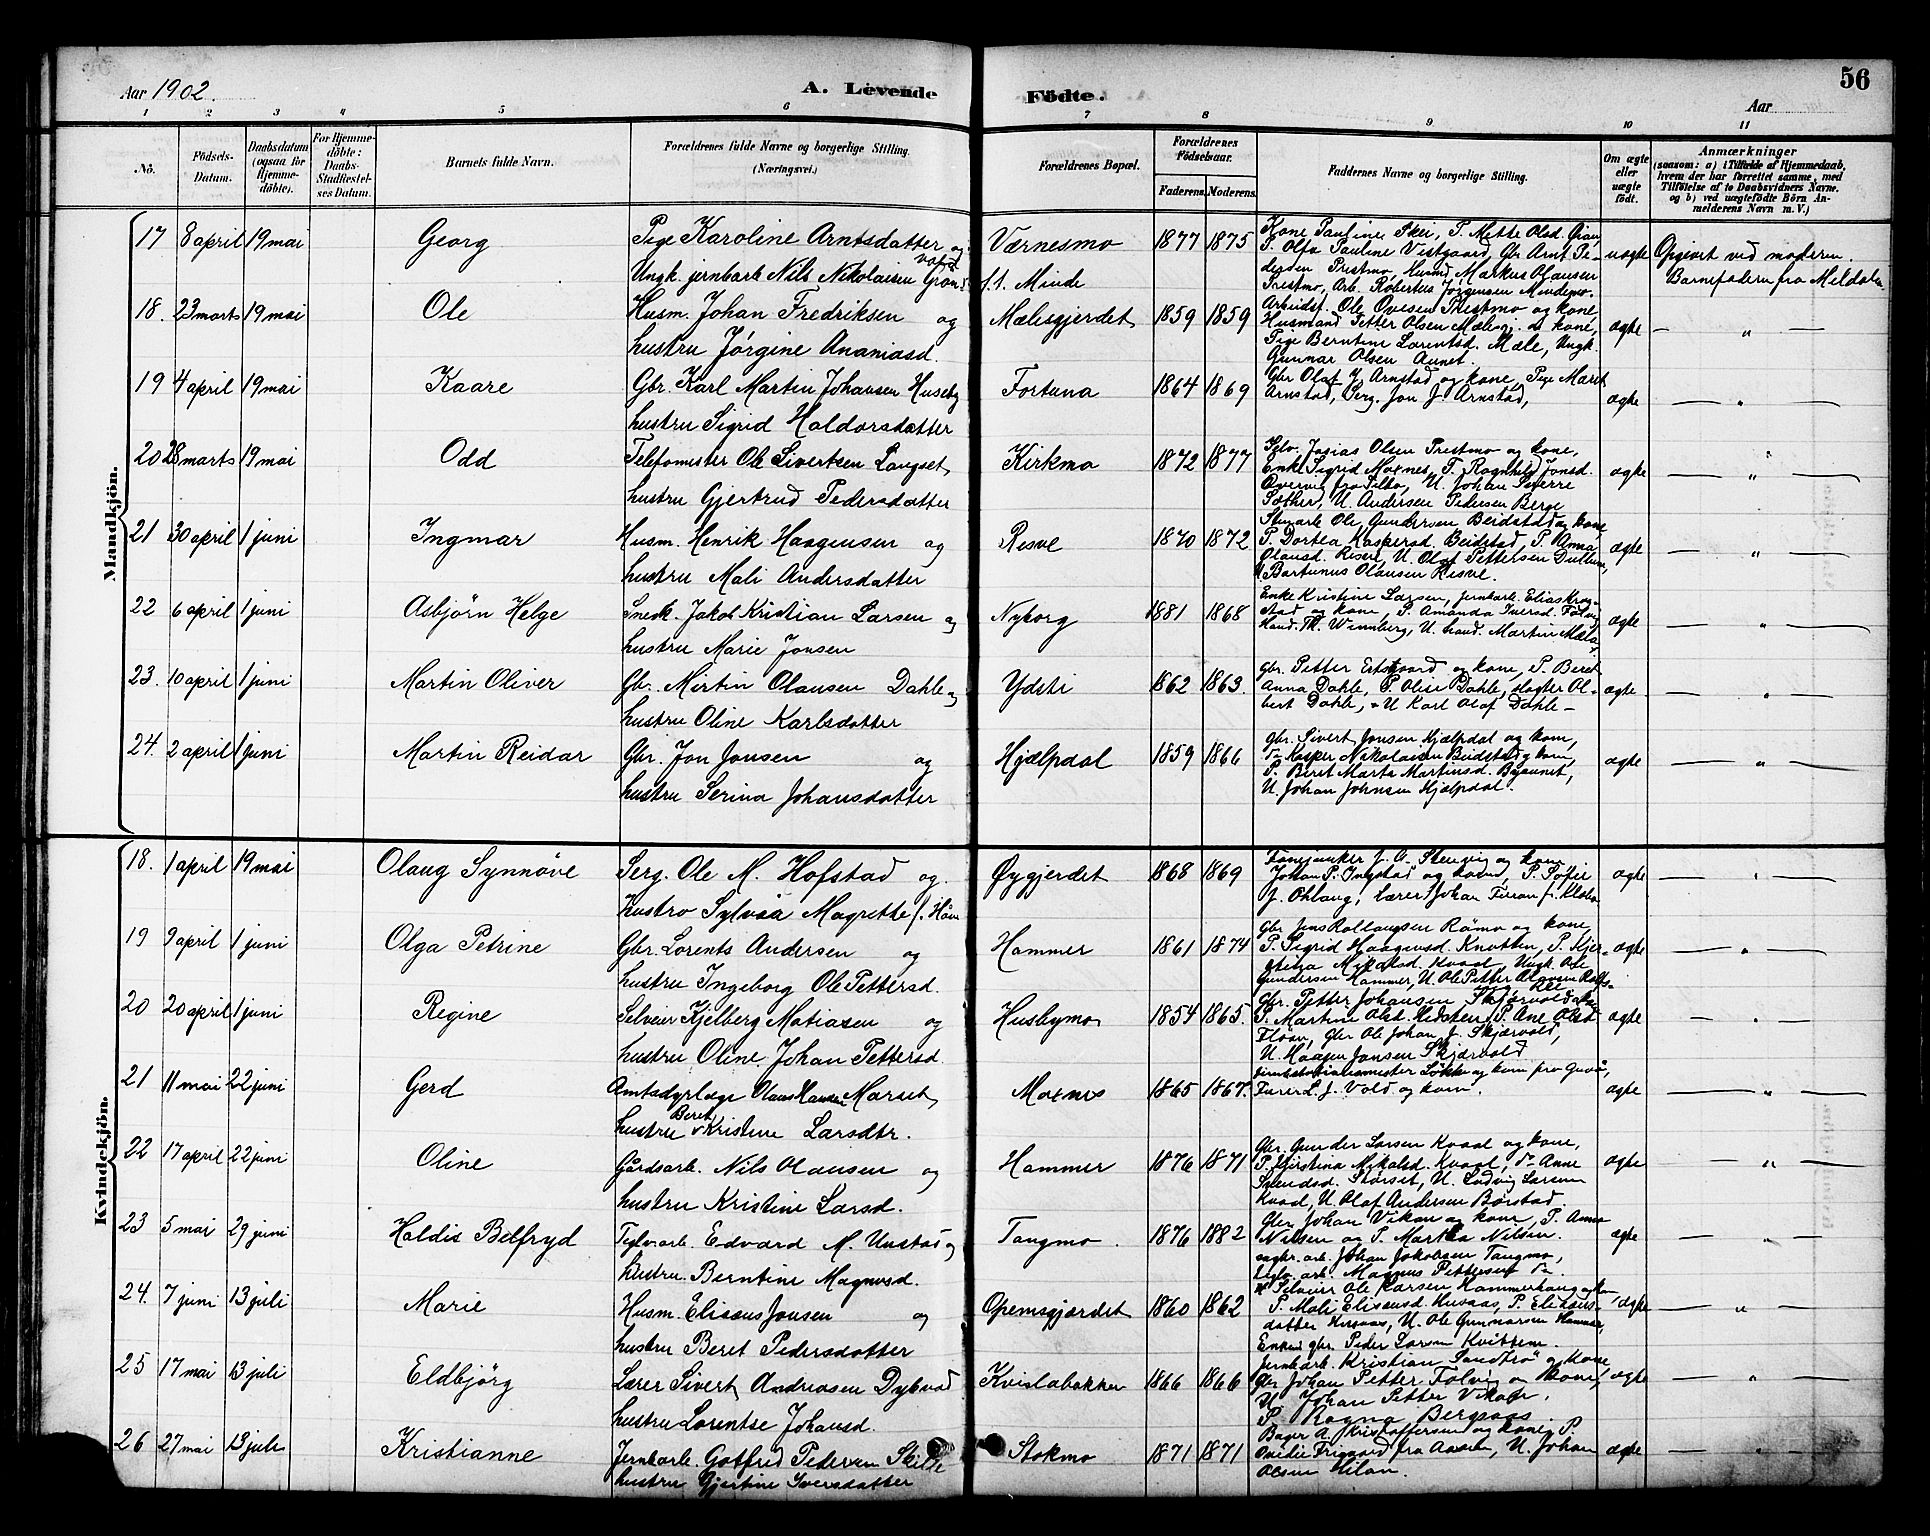 56
Aar 1902.
A. Levende
Födte.
Aar
1 2 3 4 5 6 7 8 9 10 11
No.
Födsels-Datum.
Daabsdatum (ogsaa for Hjemme-döbte).
For Hjemme-döbte: Daabs-Stadfæstel-ses Datum.
Barnets fulde Navn.
Forældrenes fulde Navne og borgerlige Stilling. (Næringsvei.)
Forældrenes Bopæl.
Forældrenes Födselsaar.
Faderens. Moderens.
Faddernes Navne og borgerlige Stilling.
Om ægte eller uægte födt.
Anmærkninger
(saasom: a) i Tilfælde af Hjemmedaab,
hvem der har forrettet samme, med
Tilföielse af to Daabsvidners Navne.
og b) ved uægtefödte Börn An-
melderens Navn m. V.)
Mandkjön.
17 8 april 19 mai Georg Pige Karoline Arntsdatter og Værnesmo 1877 1875 Kone Pauline Skei, P. Mette Olsd. uægte Opgivet ved moderen.
Ungk. jernbarb. Nils Nikolaisen f. t. Minde P. Olfa Pauline Vistgaard, Gbr Arnt Pe-
dersen Prestmo, Husmd Markus Olausen Barnefaderen fra Meldalen
Prestmo, Arb. Robertus Jörgensen Mindemo.
18. 23 marts 19 mai Ole Husm. Johan Fredriksen og Mælesgjerdet 1859 1859 Arbeidsf. Ole Ovesen Prestmo og kone, ægte — " —
hustru Jörgine Ananiasd. Husmand Petter Olsen Mælesgj. og kone,
Pige Berntine Larentsd. Mæle, Ungk.
Gunnar Olsen Aunet.
19 4 april 19 mai Kaare Gbr. Karl Martin Johansen Huseby Fortuna 1864 1869 Gbr Olaf J. Arnstad og kone, Pige Maret ægte — " —
hustru Sigrid Haldorsdatter Arnstad, Serg. Jon J. Arnstad,
20 28 marts 19 mai Odd Telefonmester Ole Sivertsen Langset, Kirkmo 1872 1877 Josias Olsen Prestmo og kone, ægte — " —
hustru Gjertrud Pedersdatter Enke Sigrid Moxnes, P. Ragnhild Jonsd.
Selbo, U. Johan Sverre
Sæther, U. Andersen Pedersen Berge
21 30 april 1 juni Ingmar Husm. Henrik Haagensen og Resve 1870 1872 Ole Gundersen Beidstad og kone, ægte — " —
hustru Mali Andersdatter P. Dortea Kaspersd. Beidstad, P. Anna
Olausd. Resve, U. Olaf Pettersen Dullum,
U Bartunus Olausen Resve.
22 6 april 1 juni Asbjörn Helge Snedk. Jakob Kristian Larsen og Nyborg 1881 1868 Enke Kristine Larsen, jernbarb. Elias Krog- ægte — " —
hustru Marie Jonsen stad og kone, P. Amanda Iversd.
Hand. Th. Winnberg, U. hand. Martin Mæla
23. 10 april 1 juni Martin Oliver Gb. Mirtin Olausen Dahle og Ydsti 1862 1863. Gbr. Petter Ertsgaard og kone, P. Beret ægte — " —
hustru Oline Karlsdatter Anna Dahle, P. Olise Dahle, slagter Ol-
bert Dahle, U Karl Olaf Dahle —
24. 2 april 1 juni Martin Reidar Gbr. Jon Jonsen og Hjælpdal 1859 1866 Gbr. Sivert Jonsen Hjælpdal og kone, ægte — " —
hustru Serina Johansdatter Kasper Nikolaisen Beidstad og kone,
P. Beret Marta Martinsd.
U. Johan Johnsen Hjælpdal.
Kvindekjön.
18. 1 april 19 mai Olaug Synnöve Serg. Ole M. Hofstad og Øygjerdet 1868 1869 Fanejunker J. A. Stenvig og kone ægte — " —
hustro Sylvia Magrette Johan P. Ingstad og kone, P. Sofie
lærer Johan
19 9 april 1 juni Olga Petrine Gbr. Lorents Andersen og Hammer 1861 1874 Gbr Jens Rømo og kone, ægte — " —
hustru Ingeborg Ole Pettersd. P. Sigrid Haagensd. Knotten, P. Kjer-
stina Mikalsd. Kvaal, Ungk. Ole
Gundersen Hammer, U. Ole Petter
20 20 april 1 juni Regine Selveier Kjelberg Matiasen og Husbymo 1854 1865. Gbr. Petter Johansen Skjærvold ægte — " —
hustru Oline Johan Pettersd. P. Martine Olsd. P. Ane Olsd
Floan, Gbr Ole Johan J. Skjærvold,
U. Haagen Jonsen Skjærvold
21 11 mai 22 juni Gerd Amtsdyrlæge Olaus Hansen Morset Moxnes 1865 1867. og kone fra ægte — " —
hustru Beret Kristine Larsdtr. Furer L. J. Vold og kone.
22 17 april 22 juni Oline Gårdsarb. Nils Olausen og Hammer 1876 1871 Gbr. Gunder Larsen Kvaal og kone, ægte — " —
hustru Kristine Larsd. P. Kjirstina Mikalsd. Kvaal, Anne
Svendsd. Storset, U. Ludvig Larsen
Kvaal, U. Olaf Andersen Börstad
23 5 mai 29 juni Haldis Belfryd Teglv.arb. Edvard M. Unstad og Tangmo. 1876 1882 Gbr Johan Vikan og kone, P. Anna ægte — " —
hustru Berntine Magnusd. Nilsen og P. Martha Nilsen.
Johan Jakobsen Tangmo,
Teglv. arb. Magnus Pettersen
24. 7 juni 13 juli Marie Husm. Eliseus Jonsen og Opemsgjærdet 1860 1862 Selveier Ole Larsen Hammerhaug og kone ægte — " —
hustru Beret Pedersdatter P. Mali Eliseusd. P.
datter U. Ole Gunnarsen Hammer,
gbr. Peder Larsen Kvithem.
25 17 mai 13 juli Eldbjörg Lærer Sivert Andreasen Dybvad Kvislabakken 1866 1866 Jernbarb. Kristian Sandtrö og kone ægte — " —
hustru Lorentse Johansd. Gbr Johan Petter Folvig og kone,
U. Johan Petter Vikan.
P. Ragna Bergsaas.
26 27 mai 13 juli Kristianne Jernbarb. Gotfred Pedersen Stokmo 1871 1871 Bager A. Kristoffersen og kone, P. ægte — " —
hustru Gjertine Iversdatter fra U. Johan
Olsen Hilan.